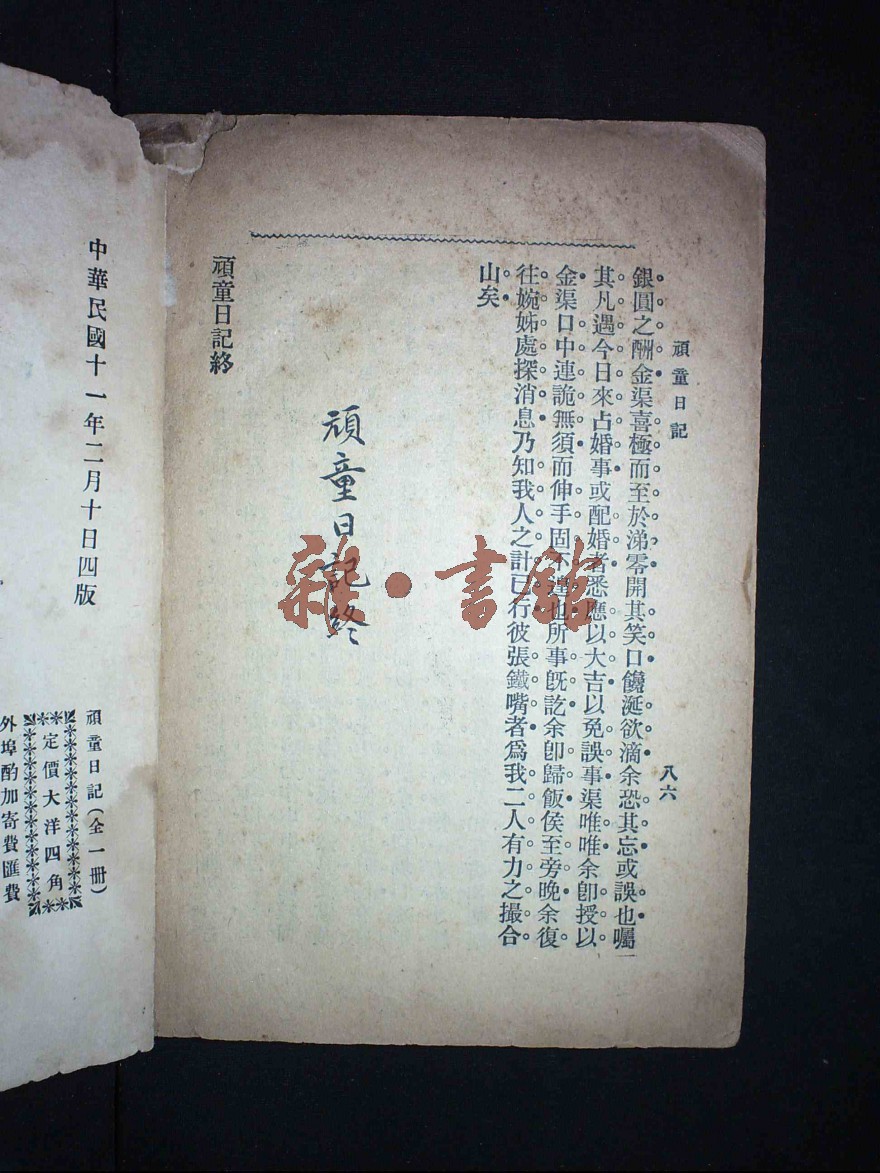 頑童日記
八六
銀圓之酬金渠喜極而至於涕零開其笑口饞涎欲滴余恐其忘或誤也囑
其凡遇今日來占婚事或配婚者悉應以大吉以免誤事渠唯唯余卽授以
金渠口中連詭無須而伸手固不遑也所事旣訖余卽歸飯俟至旁晚余復
往婉姊處探消息乃知我人之計已行彼張鐵嘴者爲我二人有力之撮合
山矣
頑童日記終
頑童日記終
雜·書館
中華民國十一年二月十日四版
頑童日記(全一册)
定價大洋四角
外埠酌加寄費匯費